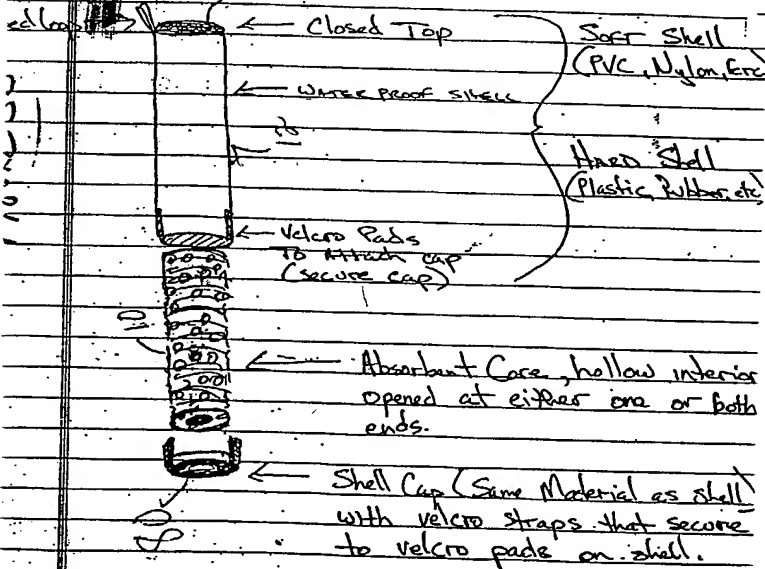 ed loop
Closed Top
Soft Shell
(PVC, Nylon, Etc
WATER PROOF SHELL
12
Hard Shell
(Plastic, Rubber, etc)
Velcro Pads
To Attach cap
(secure cap)
10
Absorbent Core, hollow interior
opened at either one or both
ends.
Shell Cap (Same Material as shell)
with velcro straps that secure
to velcro pads on shell.
80